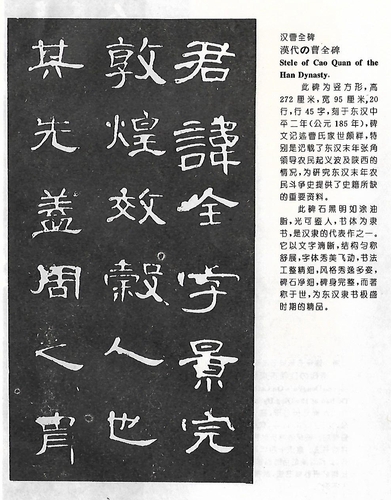 君諱全字景完
敦煌效穀人也
其先蓋周之胄
汉曹全碑
漢代の曹全碑
Stele of Cao Quan of the
Han Dynasty.
此碑为竖方形，高
272 厘米，宽 95 厘米，20
行，行 45 字，刻于东汉中
平二年（公元 185 年），碑
文记述曹氏家世颇祥，特
别是记载了东汉末年张角
领导农民起义波及陕西的
情况，为研究东汉末年农
民斗争史提供了史籍所缺
的重要资料。
此碑石黑明如涂油
脂，光可鉴人，书体为隶
书，是汉隶的代表作之一。
它以文字清晰，结构匀称
舒展，字体秀美飞动，书法
工整精细，风格秀逸多姿，
碑石净细，碑身完整，而著
称于世，为东汉隶书极盛
时期的精品。